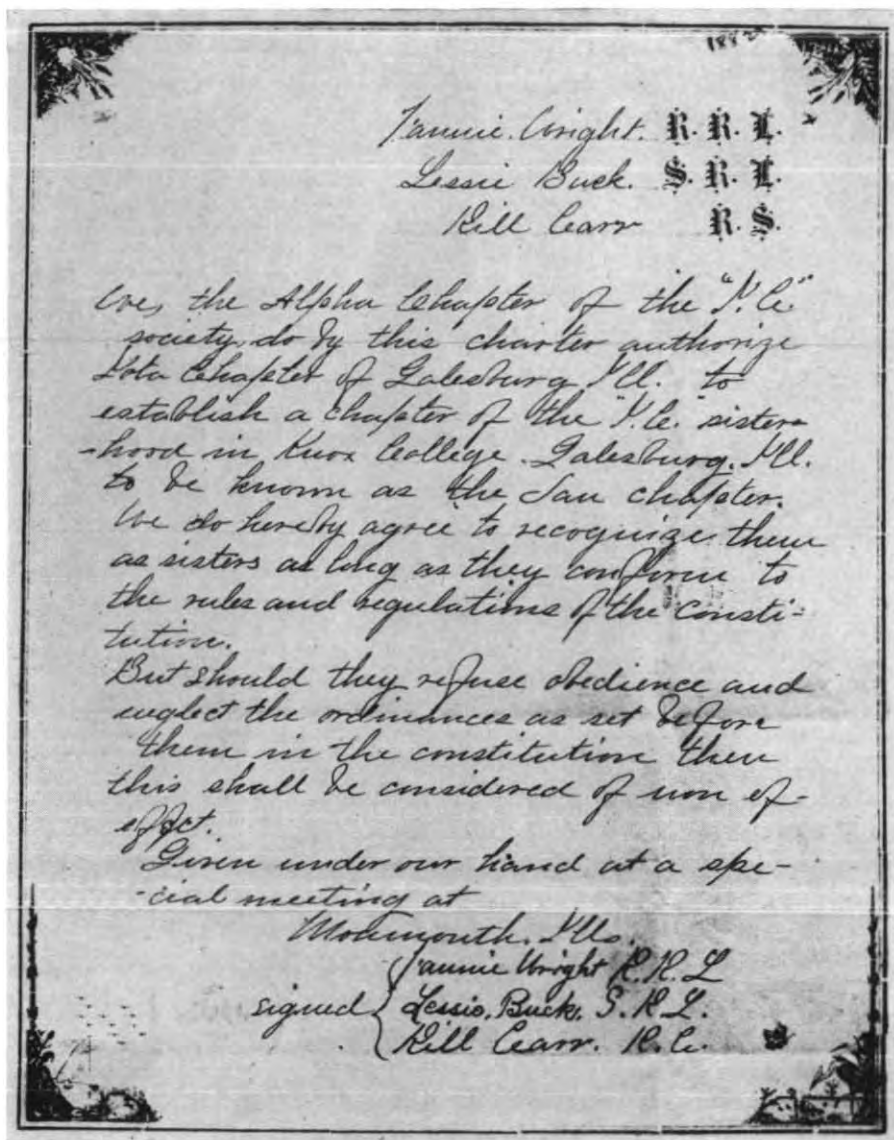 1882
Fannie Wright. R. R. L.
Lessie Buck. S. R. L.
Rill Carr R. S.
We, the Alpha Chapter of the "I. C."
society, do by this charter authorize
Iota Chapter of Galesburg, Ill. to
establish a chapter of the "I. C." sister-
-hood in Knox College. Galesburg. Ill.
to be known as the Tau chapter.
We do hereby agree to recognize them
as sisters as long as they conform to
the rules and regulations of the consti-
tution.
But should they refuse obedience and
neglect the ordinances as set before
them in the constitution then
this shall be considered of non ef-
effct.
Given under our hand at a spe-
-cial meeting at
Monmouth. Ills.
Fannie Wright R. R. L
signed Lessie. Buck. S. R L.
Rill Carr. R. C.